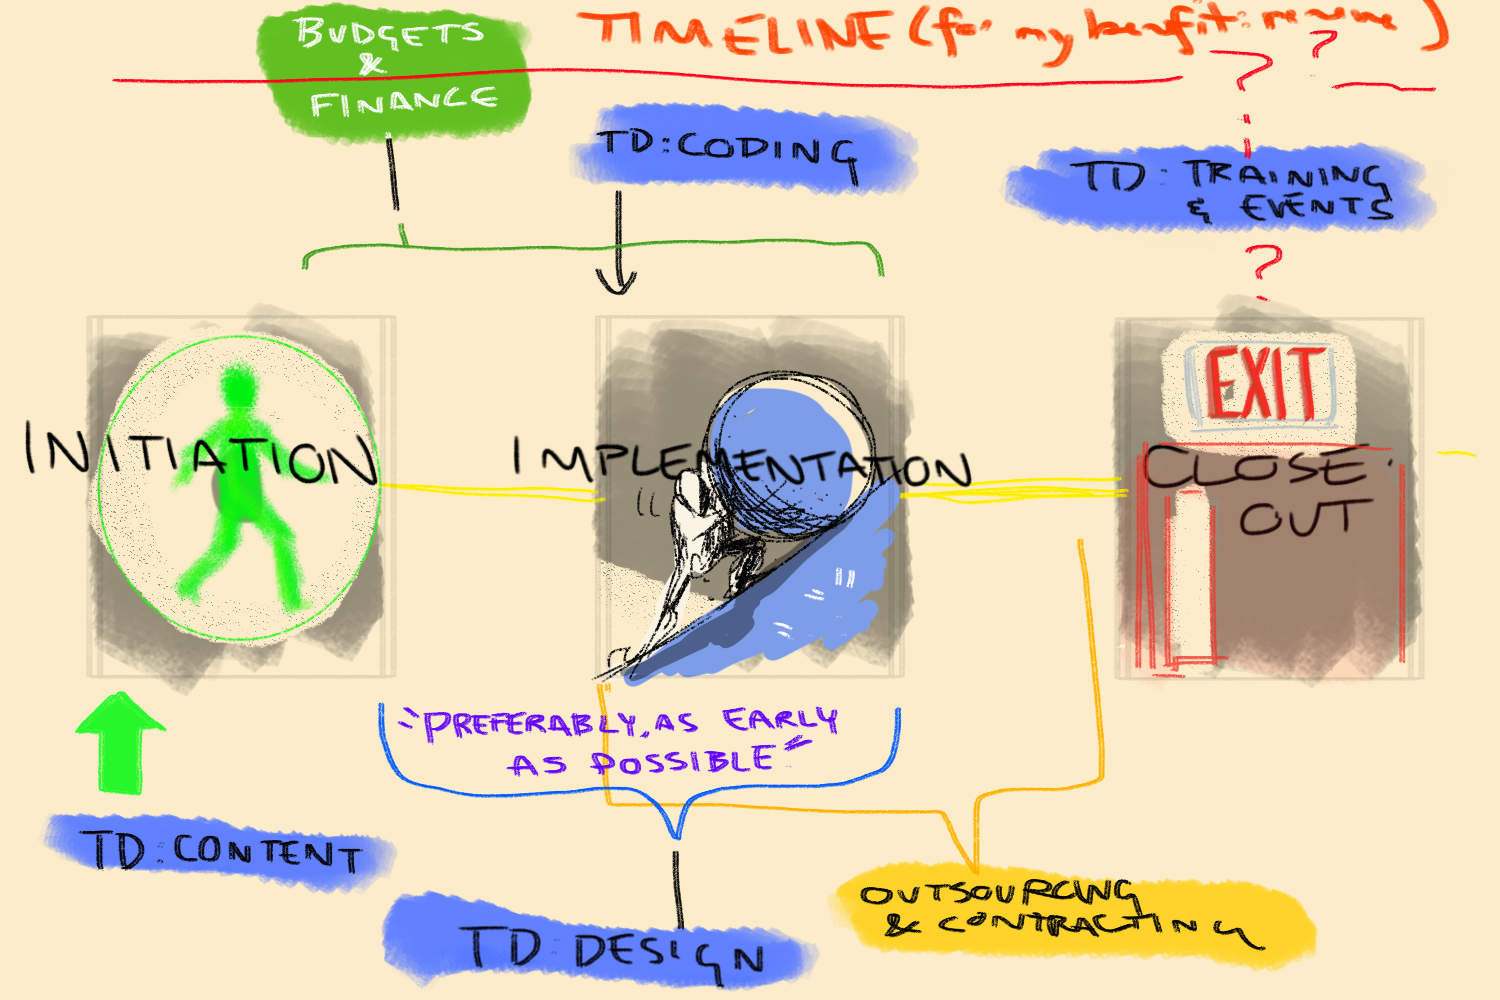 BUDGETS
&
FINANCE
TIMELINE (for my benefit: remove)
? ?
TD: CODING
TD: TRAINING
& EVENTS
?
INITIATION
IMPLEMENTATION
EXIT
CLOSE
OUT
"PREFERABLY, AS EARLY
AS POSSIBLE"
TD: CONTENT
TD: DESIGN
OUTSOURCING
& CONTRACTING